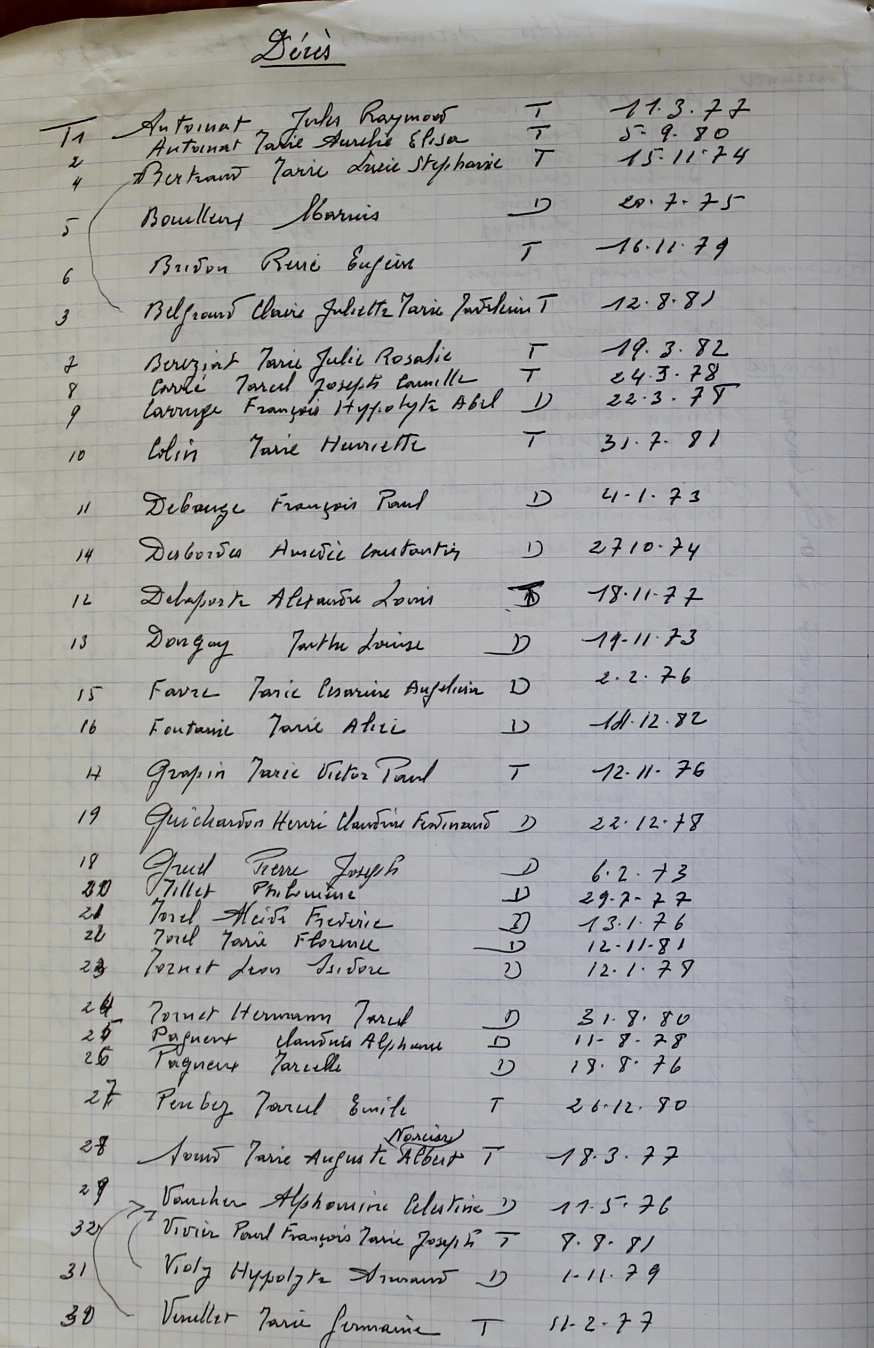 Décès
T1 Antoinat Jules Raymond T 11.3.77
2 Antoinat Marie Aurelie Elisa T 5-9.80
4 Bertrand Marie Lucie Stephanie T 15-11-74
5 Bouilleux Marius D 20.7-75
6 Bridon René Eugène T 16.11.79
3 Belgrand Claire Juliette Marie T 12.8.81
7 Bereziat Marie Julie Rosalie T 19.3.82
8 Carré Marcel Joseph Camille T 24.3.78
9 Carruge François Hyppolyte Abel D 22.3.78
10 Colin Marie Henriette T 31.7.81
11 Debauge François Paul D 4-1.73
14 Desbordes Amédée Constantin D 27 10.74
12 Delaporte Alexandre Louis 18.11.77
13 Donguy Marthe Louise D 19-11.73
15 Favre Marie Cesarine Angelina D 2.2.76
16 Fontaine Marie Alice D 12.82
Grapin Marie Victor Paul T 12-11.76
19 Guichardon Henri Claudine Ferdinand D 22.12.78
18 Gruel Pierre Joseph D 6.2.73
20 Millet Philomène D 29.7-77
21 Morel Frederic D 13.1.76
22 Morel Marie Florence D 12-11-81
23 Mornet Leon Isidore D 12.1.78
24 Mornet Hermann Marcel D 31.8.80
25 Pagneux Claudius Alphonse D 11-8-78
26 Pagneux Marcelle D 18.8.76
27 Marcel Emile T 26.12.80
Narcisse
28 Marie Auguste Albert T 18.3.77
29 Vaucher Alphonsine Celestine D 11.5.76
32 Vivier Paul François Marie Joseph T 8.8.81
31 Violy Hyppolyte Armand D 1-11.79
30 Vuillet Marie Germaine T 11-2-77